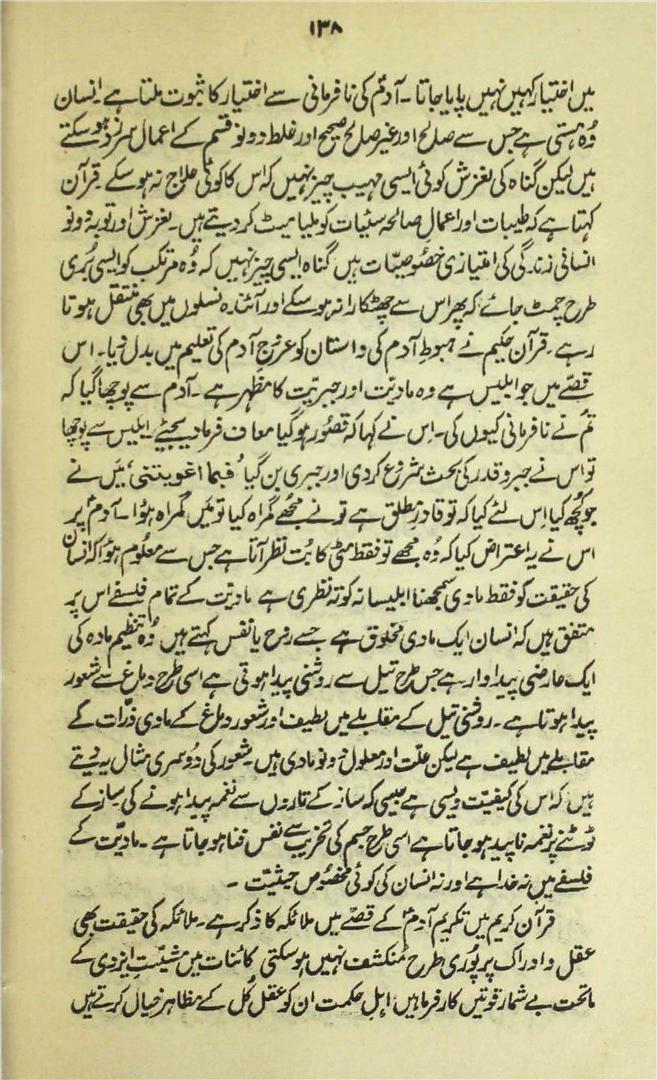 ۱۳۸
میں اختیار کہیں نہیں پایا جاتا۔ آدمؑ کی نافرمانی سے اختیار کا ثبوت ملتا ہے۔ انسان
وُہ ہستی ہے جس سے صالح اور غیر صالح صحیح اور غلط دونو قسم کے اعمال سرزد ہو سکتے
ہیں لیکن گناہ کی لغزش کوئی ایسی مہیب چیز نہیں کہ اس کا کوئی علاج نہ ہو سکے۔ قرآن
کہتا ہے کہ طیبات اور اعمالِ صالحہ سیّئات کو ملیا میٹ کر دیتے ہیں۔ لغزش اور توبہ دونو
انسانی زندگی کی امتیازی خصُوصیّات ہیں گناہ ایسی چیز نہیں کہ وُہ مرتکب کو ایسی بُری
طرح چمٹ جائے کہ پھر اس سے چھٹکارا نہ ہو سکے اور آئندہ نسلوں میں بھی منتقل ہوتا
رہے۔ قرآن حکیم نے ہبوطِ آدم کی داستان کو عروجِ آدم کی تعلیم میں بدل دیا۔ اس
قصّے میں جو ابلیس ہے وہ مادیّت اور جبریّت کا مظہر ہے۔ آدم سے پوچھا گیا کہ
تم نے نافرمانی کیوں کی۔ اس نے کہا کہ قصُور ہو گیا معاف فرما دیجئے۔ ابلیس سے پوچھا
تو اس نے جبر و قدر کی بحث شروع کر دی اور جبری بن گیا 'فبما اغویتنی' میَں نے
جو کُچھ کیا اس لئے کیا کہ تو قادرِ مطلق ہے تو نے مجھے گمراہ کیا تو میَں گمراہ ہؤا۔ آدمؑ پر
اس نے یہ اعتراض کیا کہ وُہ مجھے تو فقط مٹی کا بُت نظر آتا ہے جس سے معلُوم ہؤا کہ انسان
کی حقیقت کو فقط مادی سمجھنا ابلیسانہ کوتہ نظری ہے مادیّت کے تمام فلسفے اس پر
متفق ہیں کہ انسان ایک مادی مخلوق ہے جسے روح یا نفس کہتے ہیں وُہ تنظیم مادہ کی
ایک عارضی پیداوار ہے جس طرح تیل سے روشنی پیدا ہوتی ہے اسی طرح دماغ سے شعور
پیدا ہوتا ہے۔ روشنی تیل کے مقابلے میں لطیف اور شعور دماغ کے مادی ذرّات کے
مقابلے میں لطیف ہے لیکن علّت اور معلول دونو مادی ہیں۔ شعور کی دُوسری مثال یہ دیتے
ہیں کہ اس کی کیفیّت ویسی ہے جیسی کہ ساز کے تاروں سے نغمہ پیدا ہونے کی ساز کے
ٹوٹنے پر نغمہ ناپید ہو جاتا ہے اسی طرح جسم کی تخریب سے نفس فنا ہو جاتا ہے۔ مادیّت کے
فلسفے میں نہ خدا ہے اور نہ انسان کی کوئی مخصُوص حیثیّت۔
قرآن کریم میں تکریمِ آدمؑ کے قصّے میں ملائکہ کا ذکر ہے۔ ملائکہ کی حقیقت بھی
عقل و ادراک پر پُوری طرح مُنکشف نہیں ہو سکتی کائنات میں مشیّتِ ایزدی کے
ماتحت بے شمار قوتیں کارفرما ہیں اہلِ حکمت ان کو عقلِ کُل کے مظاہر خیال کرتے ہیں